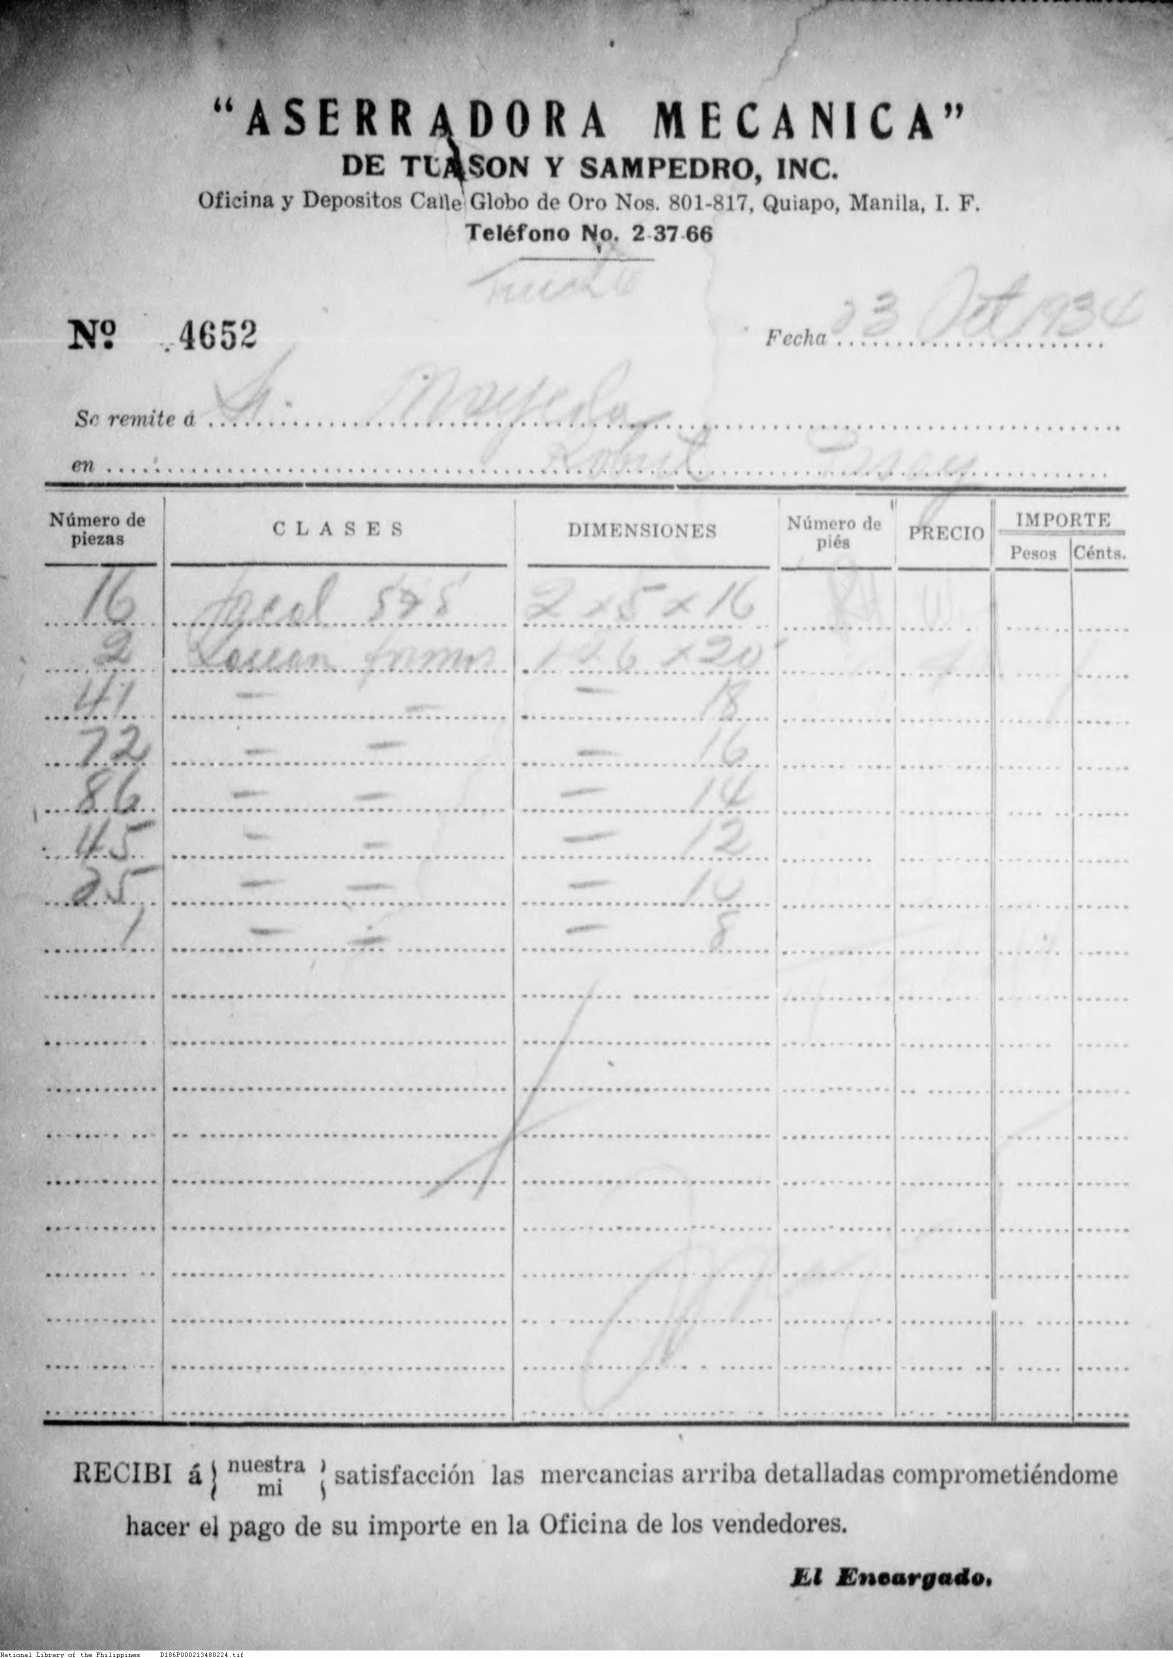 “ASERRADORA MECANICA”
DE TUASON Y SAMPEDRO, INC.
Oficina y Depositos Calle Globo de Oro Nos. 801-817, Quiapo, Manila, I. F.
Teléfono No. 2-37-66
Nº 4652
Fecha 23 Oct 1934
Se remite á Sr.
en
Número de piezas CLASES DIMENSIONES Número de piés PRECIO IMPORTE Pesos Cénts.
16 5x5 2 x 5 x 16
2 1 x 6 x 20
41 — — — 18
72 — — — 16
86 — — — 14
45 — — — 12
25 — — — 10
1 — — — 8
RECIBI á { nuestra mi } satisfacción las mercancias arriba detalladas comprometiéndome
hacer el pago de su importe en la Oficina de los vendedores.
El Encargado.
National Library of the Philippines D186P000213480224.tif